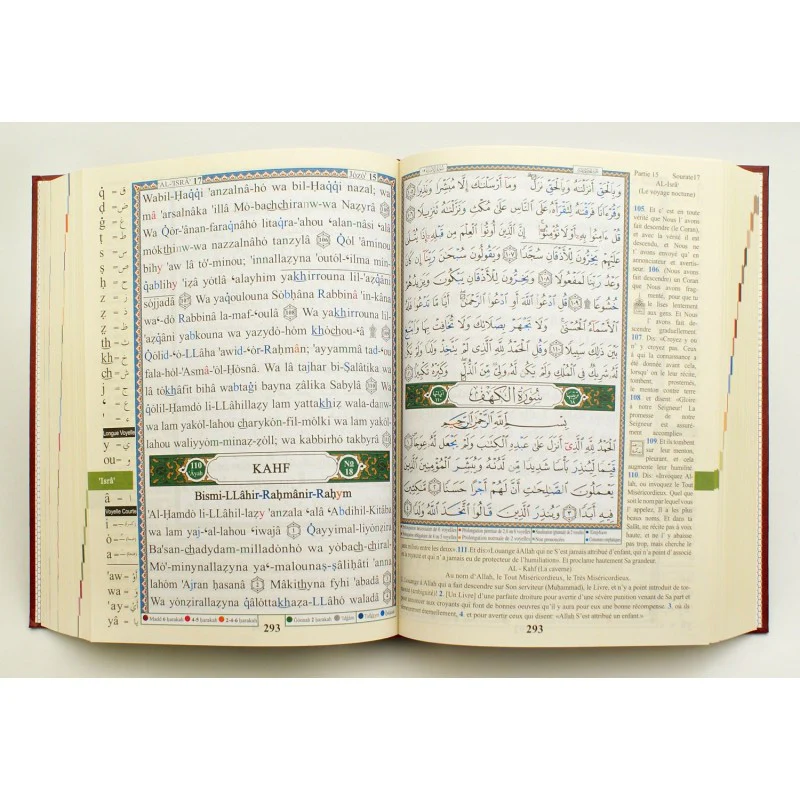 AL-'ISRÂ' 17
Jozo' 15
Wabil-Ḥaqqi 'anzalnâ-hó wa bil-Ḥaqqi nazal; wa-
mâ 'arsalnâka 'illâ Mó-bachchiraⁿw-wa Nażyrâ 105
Wa Qór'ânan-faraqnâhó litaqra-'ahou 'alan-nâsi 'alâ
mókthiⁿw-wa nazzalnâhó tanzylâ 106 Qól 'âminou
bihy 'aw lâ tó'-minou; 'innallażyna 'outól-'ilma miⁿ-
qablihy 'iżâ yótlâ 'alayhim yakhirrouna lil-'ażqâni
sójjadâ 107 Wa yaqôulouna Sóbḥâna Rabbinâ 'in-kâna
wa'dó Rabbinâ la-maf'oulâ 108 Wa yakhirrouna lil-
'ażqâni yabkouna wa yazydó-hóm khóchou'â 109
Qólid-'ó-LLâha 'awid-'ór-Raḥmân; 'ayyammâ tad-'ou
fala-hól-'Asmâ-'ól-Ḥósnâ. Wa lâ tajhar bi-Ṣalâtika wa
lâ tókhâfit bihâ wabtaġi bayna żâlika Sabylâ 110 Wa
qólil-Ḥamdó li-LLâhillaży lam yattakhiż wala-daⁿw-
wa lam yakól-lahou charykóⁿ-fil-mólki wa lam yakól-
lahou waliyyóm-minaż-żóll; wa kabbirhó takbyrâ 111
110 Ayah
KAHF
Nú 18
Bismi-LLâhir-Raḥmânir-Raḥym
'Al-Ḥamdó li-LLâhil-laży 'anzala 'alâ 'Abdihil-Kitâba
wa lam yaj-'al-lahou 'iwajâ 1 Qayyimal-liyónżira
Ba'saⁿ-chadydam-milladónhó wa yóbach-chiral-
Mó'-minynallażyna ya'-malounaṣ-ṣâliḥâti 'anna
lahóm 'Ajran ḥasanâ 2 Mâkithyna fyhi 'abadâ 3
Wa yónżirallażyna qâlóttakhaża-LLâhó waladâ 4
293
q = ق
Longue Voyelle
'Isrâ'
Voyelle Courte
وَبِالْحَقِّ أَنزَلْنَٰهُ وَبِالْحَقِّ نَزَلَ وَمَآ أَرْسَلْنَٰكَ إِلَّا مُبَشِّرًا وَنَذِيرًا ١٠٥
وَقُرْءَانًا فَرَقْنَٰهُ لِتَقْرَأَهُۥ عَلَى النَّاسِ عَلَىٰ مُكْثٍ وَنَزَّلْنَٰهُ تَنزِيلًا ١٠٦
قُلْ ءَامِنُوا۟ بِهِۦٓ أَوْ لَا تُؤْمِنُوٓا۟ إِنَّ الَّذِينَ أُوتُوا۟ الْعِلْمَ مِن قَبْلِهِۦٓ إِذَا يُتْلَىٰ
عَلَيْهِمْ يَخِرُّونَ لِلْأَذْقَانِ سُجَّدًا ١٠٧ وَيَقُولُونَ سُبْحَٰنَ رَبِّنَآ إِن كَانَ
وَعْدُ رَبِّنَا لَمَفْعُولًا ١٠٨ وَيَخِرُّونَ لِلْأَذْقَانِ يَبْكُونَ وَيَزِيدُهُمْ
خُشُوعًا ١٠٩ قُلِ ادْعُوا۟ اللَّهَ أَوِ ادْعُوا۟ الرَّحْمَٰنَ أَيًّا مَّا تَدْعُوا۟ فَلَهُ
الْأَسْمَآءُ الْحُسْنَىٰ وَلَا تَجْهَرْ بِصَلَاتِكَ وَلَا تُخَافِتْ بِهَا وَابْتَغِ
بَيْنَ ذَٰلِكَ سَبِيلًا ١١٠ وَقُلِ الْحَمْدُ لِلَّهِ الَّذِى لَمْ يَتَّخِذْ وَلَدًا وَلَمْ يَكُن
لَّهُۥ شَرِيكٌ فِى الْمُلْكِ وَلَمْ يَكُن لَّهُۥ وَلِىٌّ مِّنَ الذُّلِّ وَكَبِّرْهُ تَكْبِيرًا ١١١
سُورَةُ الْكَهْفِ
بِسْمِ اللَّهِ الرَّحْمَٰنِ الرَّحِيمِ
الْحَمْدُ لِلَّهِ الَّذِىٓ أَنزَلَ عَلَىٰ عَبْدِهِ الْكِتَٰبَ وَلَمْ يَجْعَل لَّهُۥ عِوَجَا ١
قَيِّمًا لِّيُنذِرَ بَأْسًا شَدِيدًا مِّن لَّدُنْهُ وَيُبَشِّرَ الْمُؤْمِنِينَ الَّذِينَ
يَعْمَلُونَ الصَّٰلِحَٰتِ أَنَّ لَهُمْ أَجْرًا حَسَنًا ٢ مَّٰكِثِينَ
فِيهِ أَبَدًا ٣ وَيُنذِرَ الَّذِينَ قَالُوا۟ اتَّخَذَ اللَّهُ وَلَدًا ٤
Partie 15 Sourate17
AL-Isrâ
(Le voyage nocturne)
105. Et c'est en toute
vérité que Nous l'avons
fait descendre (le Coran),
et avec la vérité il est
descendu, et Nous ne
t'avons envoyé qu'en
annonciateur et avertis-
seur. 106 (Nous avons
fait descendre) un Coran
que Nous avons frag-
menté, pour que tu
le lises lentement
aux gens. Et Nous
l'avons fait des-
cendre graduellement.
107. Dis: «Croyez-y ou
n'y croyez pas. Ceux
à qui la connaissance a
été donnée avant cela,
lorsqu'on le leur récite,
tombent, prosternés,
le menton contre terre
108. et disent «Gloire
à notre Seigneur! La
promesse de notre
Seigneur est assuré-
ment accomplie»
109. Et ils tombent
sur leur menton,
pleurant, et cela
augmente leur humilité.
110. Dis: «Invoquez Al-
lah, ou invoquez le Tout
Miséricordieux. Quel que
soit le nom par lequel vous
l'appelez, Il a les plus
beaux noms. Et dans ta
Salât, ne récite pas à voix
haute; et ne l'y abaisse
pas trop, mais cherche le
juste milieu entre les deux». 111 Et dis:«Louange à Allah qui ne S'est jamais attribué d'enfant, qui n'a point d'associé
en la royauté et qui n'a jamais eu de protecteur de l'humiliation». Et proclame hautement Sa grandeur.
AL - Kahf (La caverne)
Au nom d'Allah, le Tout Miséricordieux, le Très Miséricordieux.
1. Louange à Allah qui a fait descendre sur Son serviteur (Muhammad), le Livre, et n'y a point introduit de tor-
tuosité (ambiguïté)! 2. [Un Livre] d'une parfaite droiture pour avertir d'une sévère punition venant de Sa part et
pour annoncer aux croyants qui font de bonnes œuvres qu'il y aura pour eux une bonne récompense. 3. où ils
demeureront éternellement, 4. et pour avertir ceux qui disent: «Allah S'est attribué un enfant.»
293